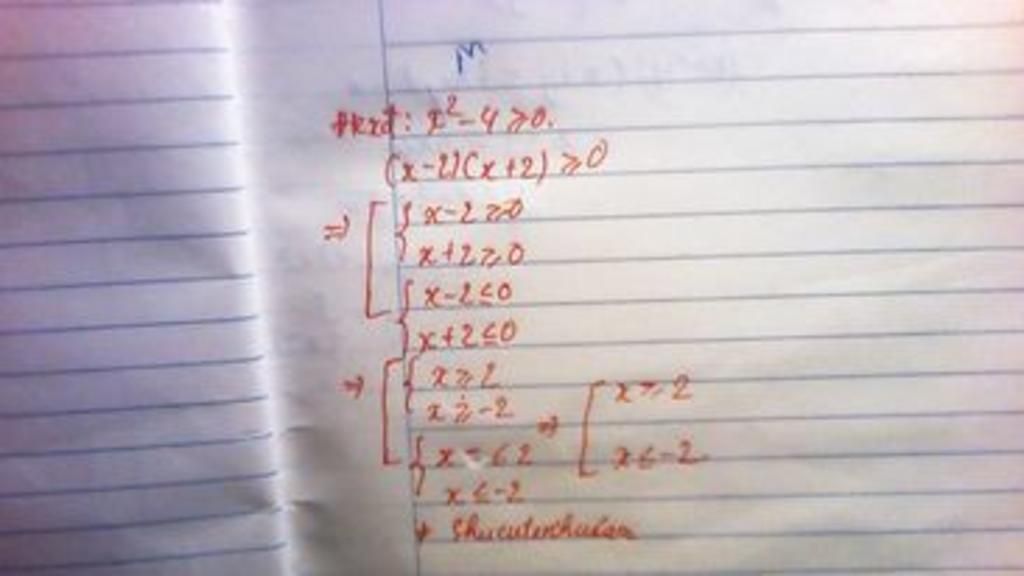 M
: x²-4 ≥ 0.
(x-2)(x+2) ≥ 0
⇒ [ { x-2 ≥ 0
x+2 ≥ 0
{ x-2 ≤ 0
x+2 ≤ 0
⇒ [ { x ≥ 2
x ≥ -2 ⇒ [ x ≥ 2
{ x ≤ 2 x ≤ -2
x ≤ -2